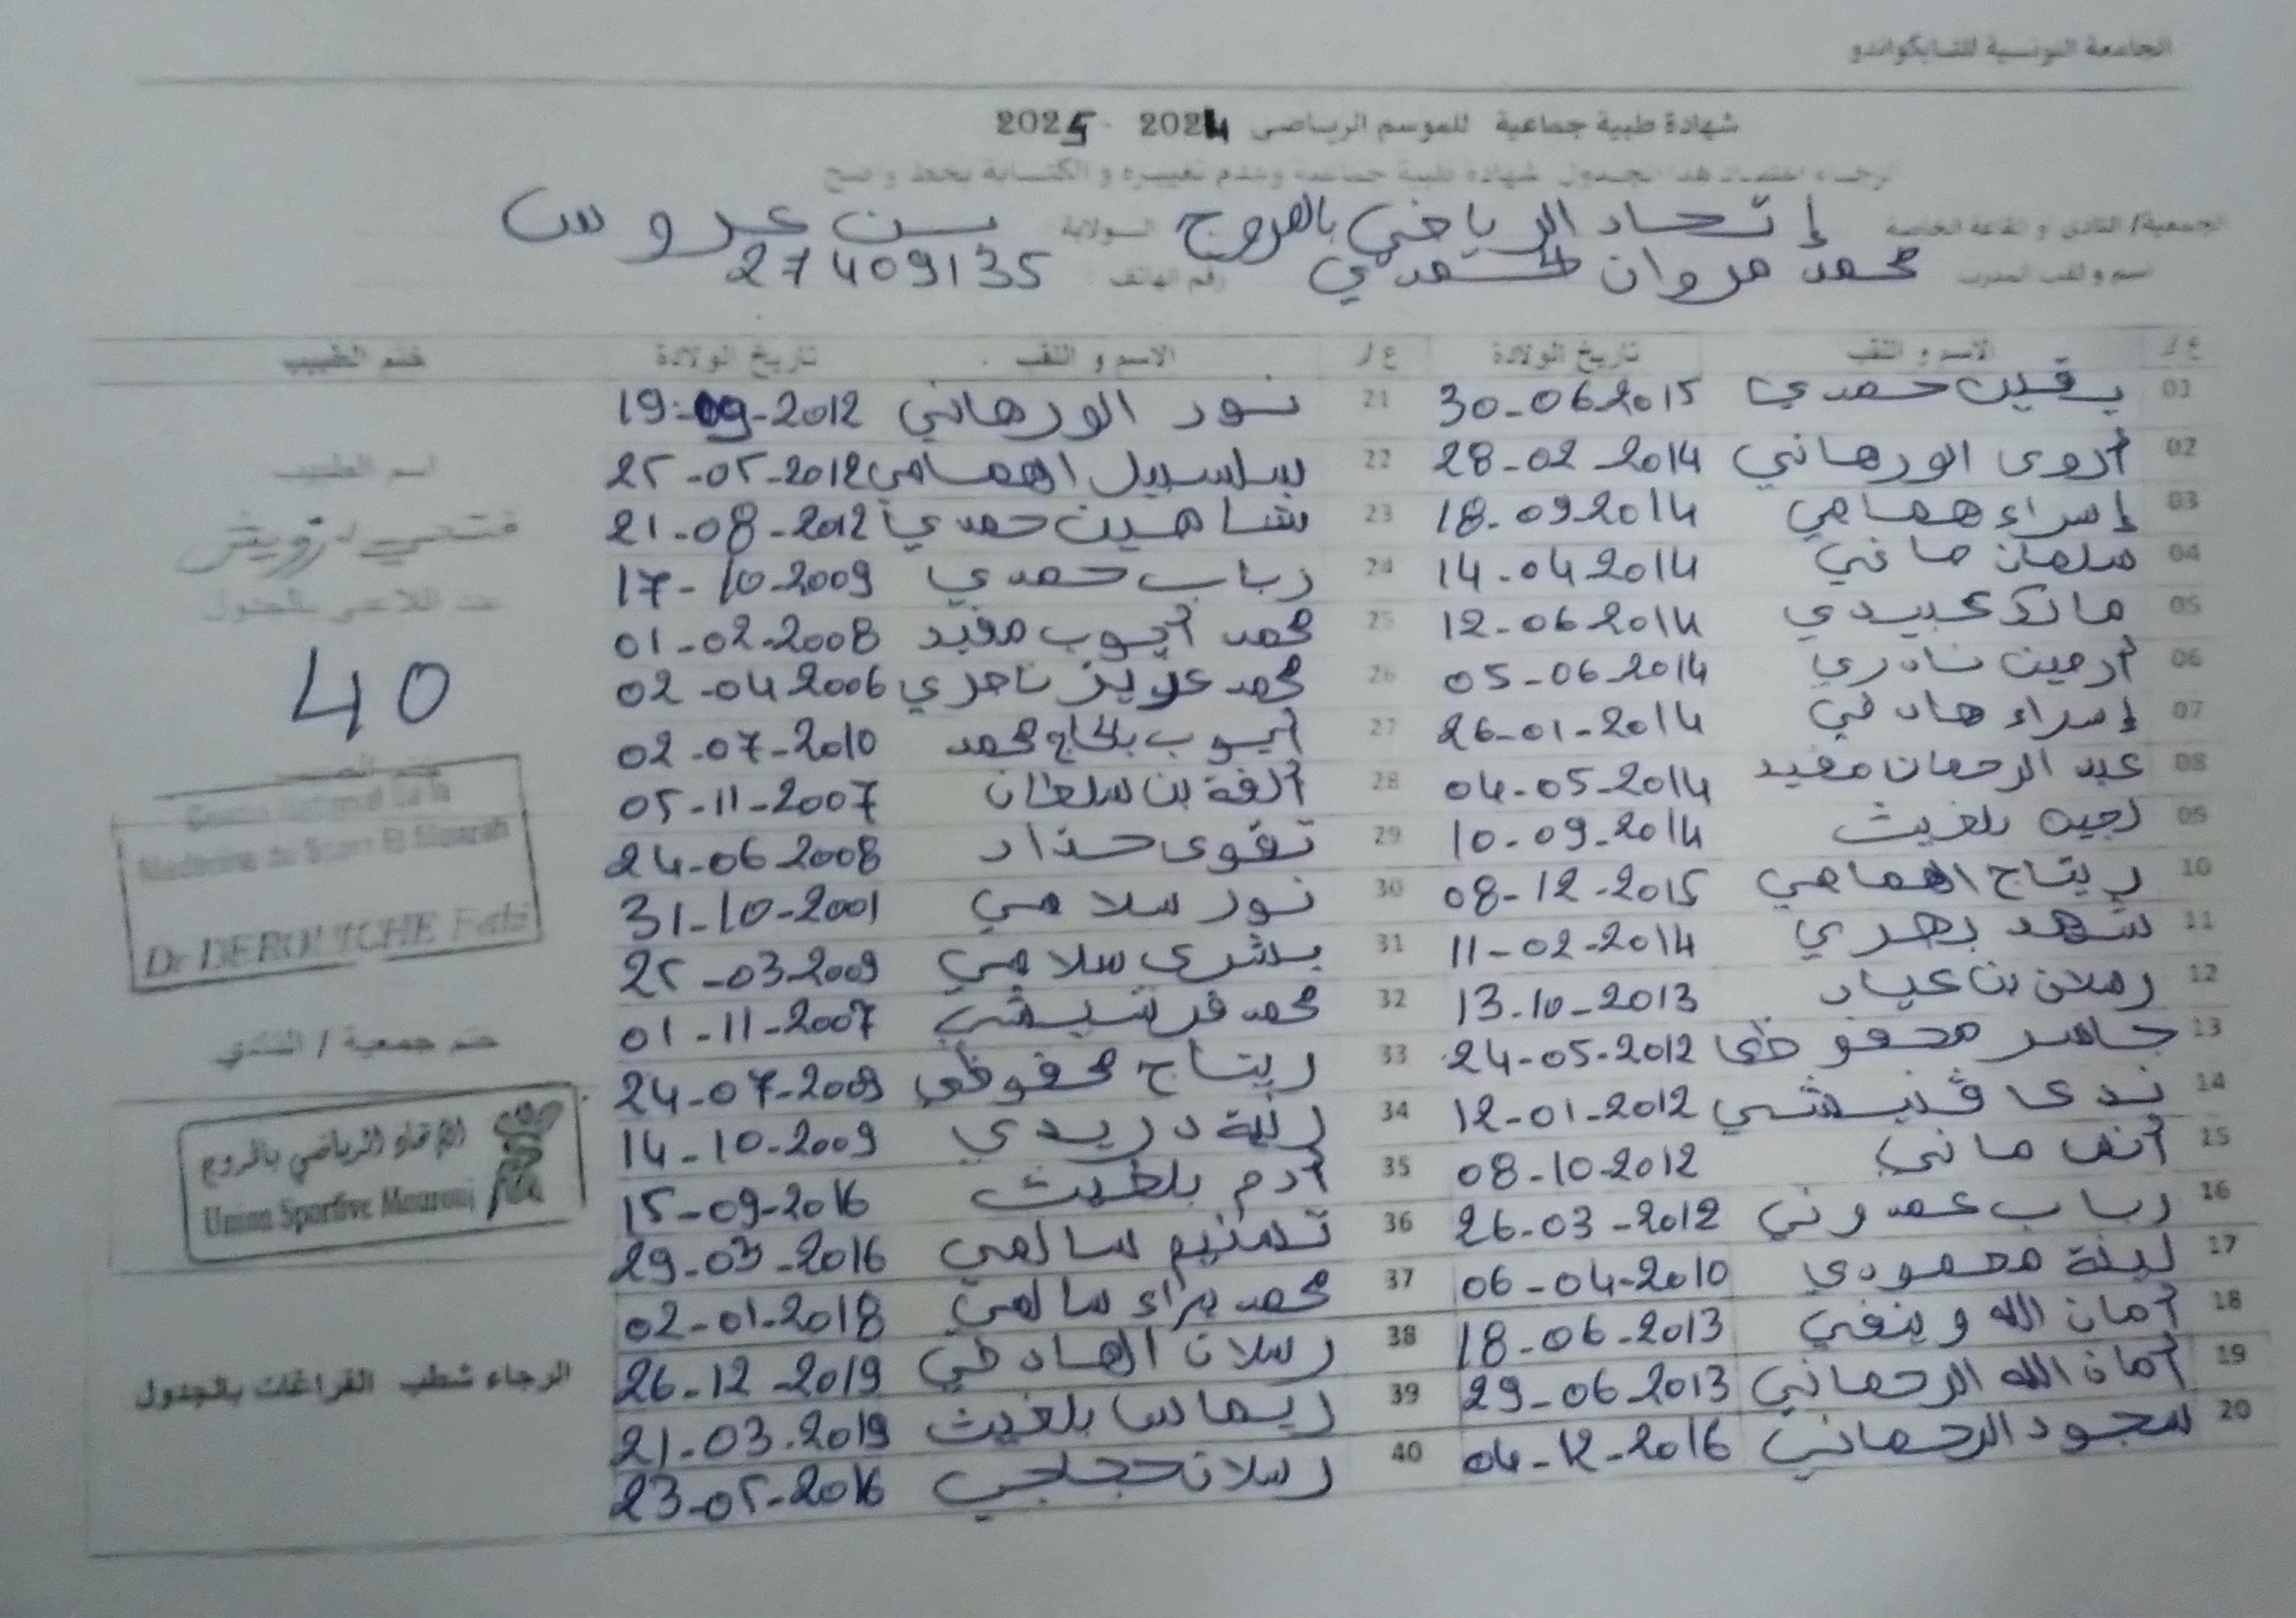 الجامعة التونسية للتايكواندو
شهادة طبية جماعية للموسم الرياضي 2024 - 2025
الرجاء اعتماد هذا الجدول شهادة طبية جماعية وعدم تغييره و الكتابة بخط واضح
الجمعية/ النادي و القاعة الخاصة إتحاد الرياضي بالمروج الولاية بن عروس
اسم و لقب المدرب محمد مروان الحمدي رقم الهاتف 27409135
ع/ الاسم و اللقب تاريخ الولادة ع/ الاسم و اللقب تاريخ الولادة ختم الطبيب
يقين حمدي 30-06-2015
02 أروى الورهاني 28-02-2014
03 إسراء همامي 18-09-2014
04 سلمان صافي 14-04-2014
05 عبيدي 12-06-2014
06 أرمين نادري 05-06-2014
07 إسراء هادفي 26-01-2014
08 عبد الرحمان مفيد 04-05-2014
09 بلغيث 10-09-2014
10 ريتاج الهمامي 08-12-2015
11 شهد بهري 11-02-2014
12 رسلان بن عياد 13-10-2013
13 جاسر محفوظي 24-05-2012
14 ندى ڨنيشي 12-01-2012
15 ماني 08-10-2012
16 رباب عمدوني 26-03-2012
17 لينة محمودي 06-04-2010
18 أمان الله وينفي 18-06-2013
19 أمان الله الرحماني 29-06-2013
20 سجود الرحماني 04-12-2016
21 نور الورهاني 19-09-2012
22 سلسبيل الهمامي 25-05-2012
23 شاهين حمدي 21-08-2012
24 رباب حمدي 17-10-2009
25 محمد أيوب مفيد 01-02-2008
26 محمد عزيز ناصري 02-04-2006
27 أيوب بالحاج محمد 02-07-2010
28 ألفة بن سلطان 05-11-2007
29 تقوى حداد 24-06-2008
30 نور سلامي 31-10-2001
31 بشرى سلامي 25-03-2009
32 محمد فرشيشي 01-11-2007
33 ريتاج محفوظي 24-07-2009
34 دريدي 14-10-2009
35 آدم بلغيث 15-09-2016
36 تسنيم سالمي 29-03-2016
37 محمد براء سالمي 02-01-2018
38 رسلان الهادفي 26-12-2019
39 ريماس بلغيث 21-03-2019
40 رسلان حجلجي 23-05-2016
اسم الطبيب
فتحي درويش
عدد اللاعبين بالجدول
40
ختم الطبيب
Medecine du Sport El Menzah
Dr DEROUICHE Fethi
ختم جمعية / النادي
الاتحاد الرياضي بالمروج
Union Sportive Mourouj
الرجاء شطب الفراغات بالجدول